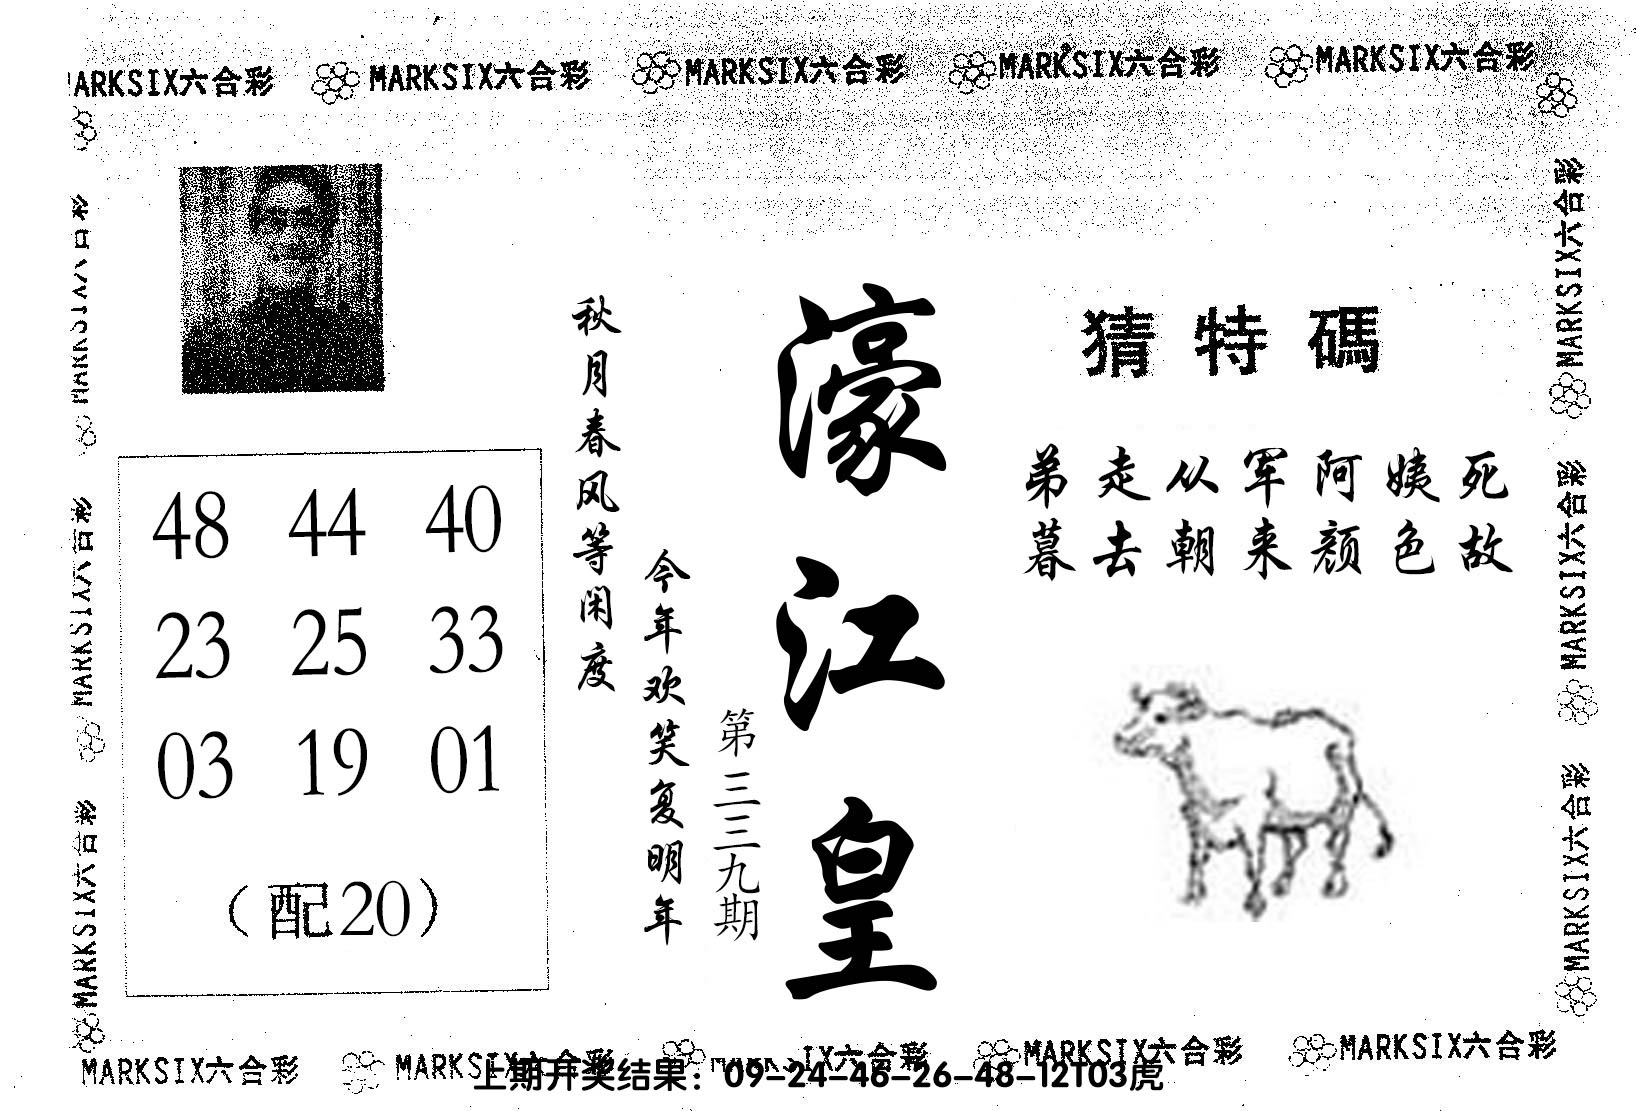 MARKSIX六合彩 MARKSIX六合彩 MARKSIX六合彩 MARKSIX六合彩 MARKSIX六合彩
猜特碼
弟走从军阿姨死
暮去朝来颜色故
濠江皇
第三三九期
秋月春风等闲度
今年欢笑复明年
48 44 40
23 25 33
03 19 01
（配20）
MARKSIX六合彩
MARKSIX六合彩
MARKSIX六合彩
MARKSIX六合彩
MARKSIX六合彩
MARKSIX六合彩
MARKSIX六合彩 MARKSIX六合彩 MARKSIX六合彩 MARKSIX六合彩
上期开奖结果：09-24-46-26-48-12T03虎